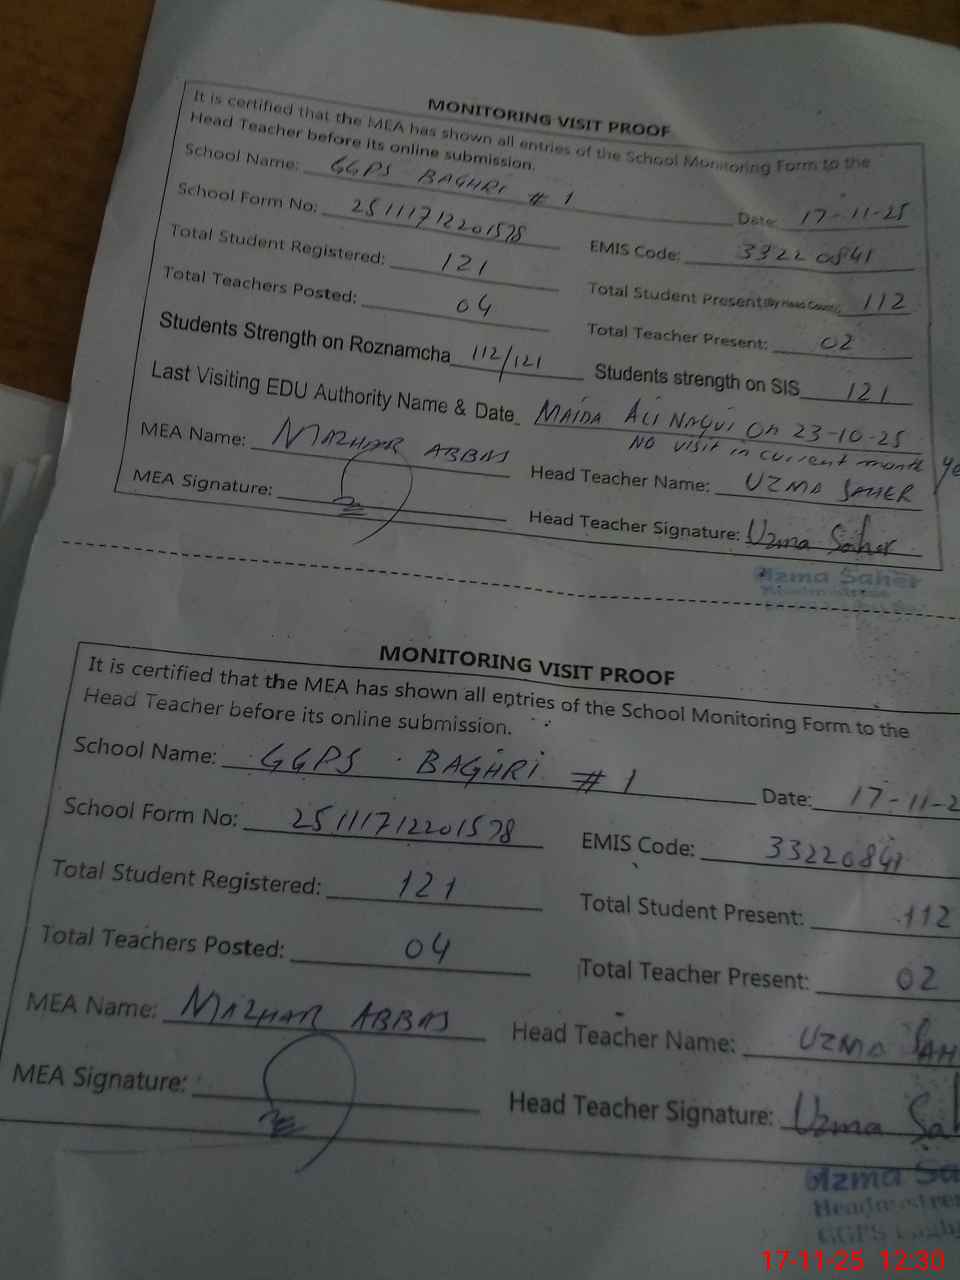 MONITORING VISIT PROOF
It is certified that the MEA has shown all entries of the School Monitoring Form to the
Head Teacher before its online submission.
School Name: GGPS BAGHRI # 1 Date: 17-11-25
School Form No: 2511171220 1578 EMIS Code: 33220841
Total Student Registered: 121 Total Student Present(By Head Count): 112
Total Teachers Posted: 04 Total Teacher Present: 02
Students Strength on Roznamcha 112/121 Students strength on SIS 121
Last Visiting EDU Authority Name & Date MAIDA ALI NAQVI On 23-10-25
NO VISIT in current month
MEA Name: MAZHAR ABBAS Head Teacher Name: UZMA SAHER
MEA Signature: Head Teacher Signature: Uzma Saher
Uzma Saher
Headmistress
MONITORING VISIT PROOF
It is certified that the MEA has shown all entries of the School Monitoring Form to the
Head Teacher before its online submission.
School Name: GGPS BAGHRI # 1 Date: 17-11-2
School Form No: 25111712201578 EMIS Code: 33220841
Total Student Registered: 121 Total Student Present: 112
Total Teachers Posted: 04 Total Teacher Present: 02
MEA Name: MAZHAR ABBAS Head Teacher Name: UZMA SAH
MEA Signature: Head Teacher Signature: Uzma Sa
Uzma Sa
Headmistres
GGPS
17-11-25 12:30